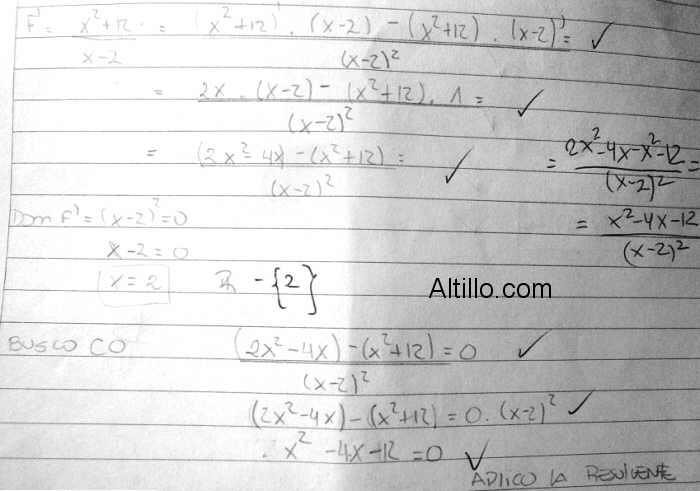 F' = x²+12 / x-2 = (x²+12)' . (x-2) - (x²+12) . (x-2)' / (x-2)² = ✓
= 2x . (x-2) - (x²+12) . 1 / (x-2)² = ✓
= (2x²-4x) - (x²+12) / (x-2)² = ✓
= 2x²-4x-x²-12 / (x-2)² =
= x²-4x-12 / (x-2)²
Dom F' = (x-2)² = 0
x-2 = 0
x = 2
ℝ - {2}
Altillo.com
BUSCO C0
(2x²-4x) - (x²+12) / (x-2)² = 0 ✓
(2x²-4x) - (x²+12) = 0 . (x-2)² ✓
x² -4x+12 = 0 ✓
APLICO LA RESOLVENTE